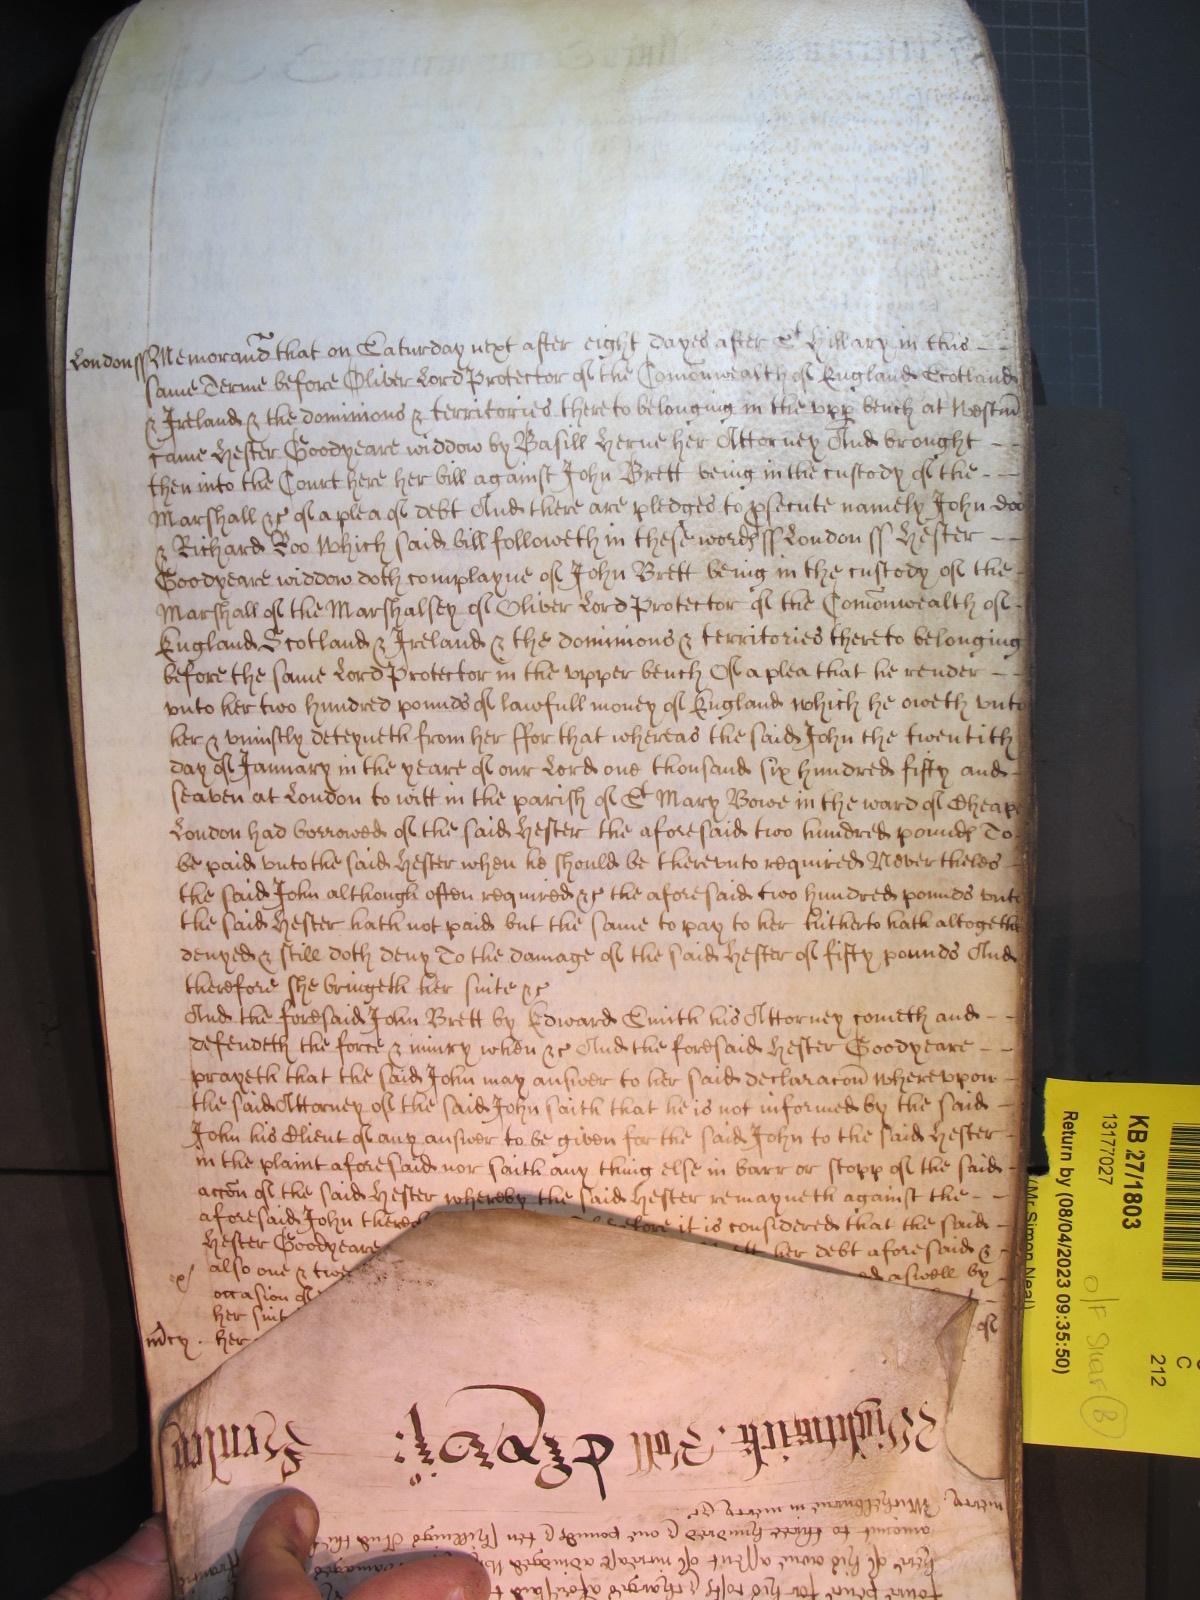 London ss Memorand that on Saturday next after eight dayes after St Hillary in this
same Terme before Oliver Lord Protector of the Comonwealth of England Scotland
& Ireland & the dominions & territories thereto belonging in the upp bench at Westm
came Hester Goodyeare widdow by Basill Herne her Attorney And brought
then into the Court here her bill against John Brett being in the custody of the
Marshall &c of a plea of debt And there are pledges to psecute namely John doo
& Richard Roo Which said bill followeth in these words ss London ss Hester
Goodyeare widdow doth complayne of John Brett being in the custody of the
Marshall of the Marshalsey of Oliver Lord Protector of the Comonwealth of
England Scotland & Ireland & the dominions & territories thereto belonging
before the same Lord Protector in the upper bench Of a plea that he render
vnto her two hundred pounds of lawfull money of England which he oweth vnto
her & vniustly deteyneth from her ffor that whereas the said John the twentith
day of January in the yeare of our Lord one thousand six hundred fifty and
seaven at London to witt in the parish of St Mary Bowe in the ward of Cheape
London had borrowed of the said Hester the aforesaid two hundred pounds To
be paid vnto the said Hester when he should be therevnto required Nevertheles
the said John although often required &c the aforesaid two hundred pounds vnto
the said Hester hath not paid but the same to pay to her hitherto hath altogeth
denyed & still doth deny To the damage of the said Hester of fifty pounds And
therefore she bringeth her suite &c
And the foresaid John Brett by Edward Smith his Attorney cometh and
defendeth the force & iniury when &c And the foresaid Hester Goodyeare
prayeth that the said John may answer to her said declaracon wherevpon
the said Attorney of the said John saith that he is not informed by the said
John his Client of any answer to be given for the said John to the said Hester
in the plaint aforesaid nor saith any thing else in barr or stopp of the said
accon of the said Hester whereby the said Hester remayneth against the
aforesaid John therof Therefore it is considered that the said
Hester Goodyeare her debt aforesaid &
also one & twe aswell by
occasion of
her suit
mcy her of
Wightwick Roll
mercy
Michelbourne in mercy &c
amount to three hundred & one pounds & ten shillings And the
here of his owne assent of increase adiudged
foure pence for his costs & charges aforesaid
KB 27/1803
13177027
Return by (08/04/2023 09:35:50)
(Mr Simon Neal)
O/F Shar B
C
212